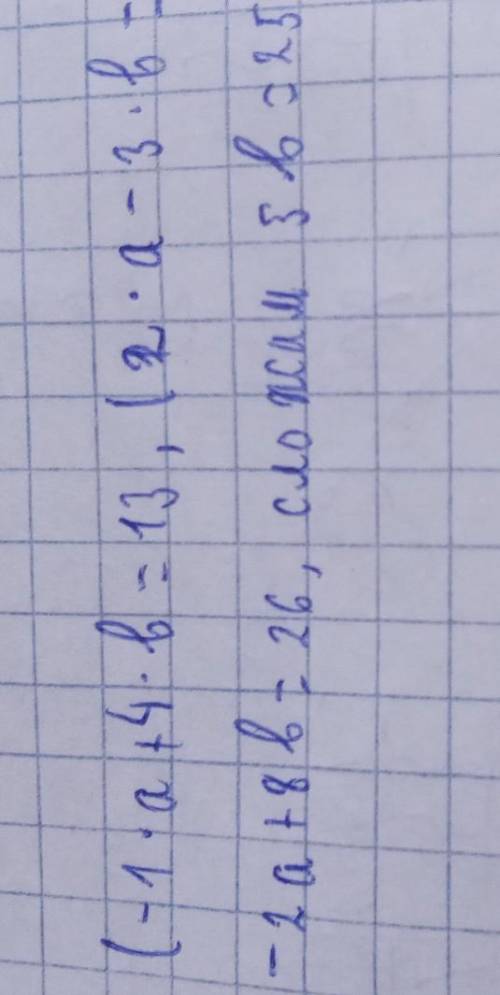 (-1·a+4·b=13, (2·a-3·b=
-2a+8b=26, сложим 5b=25